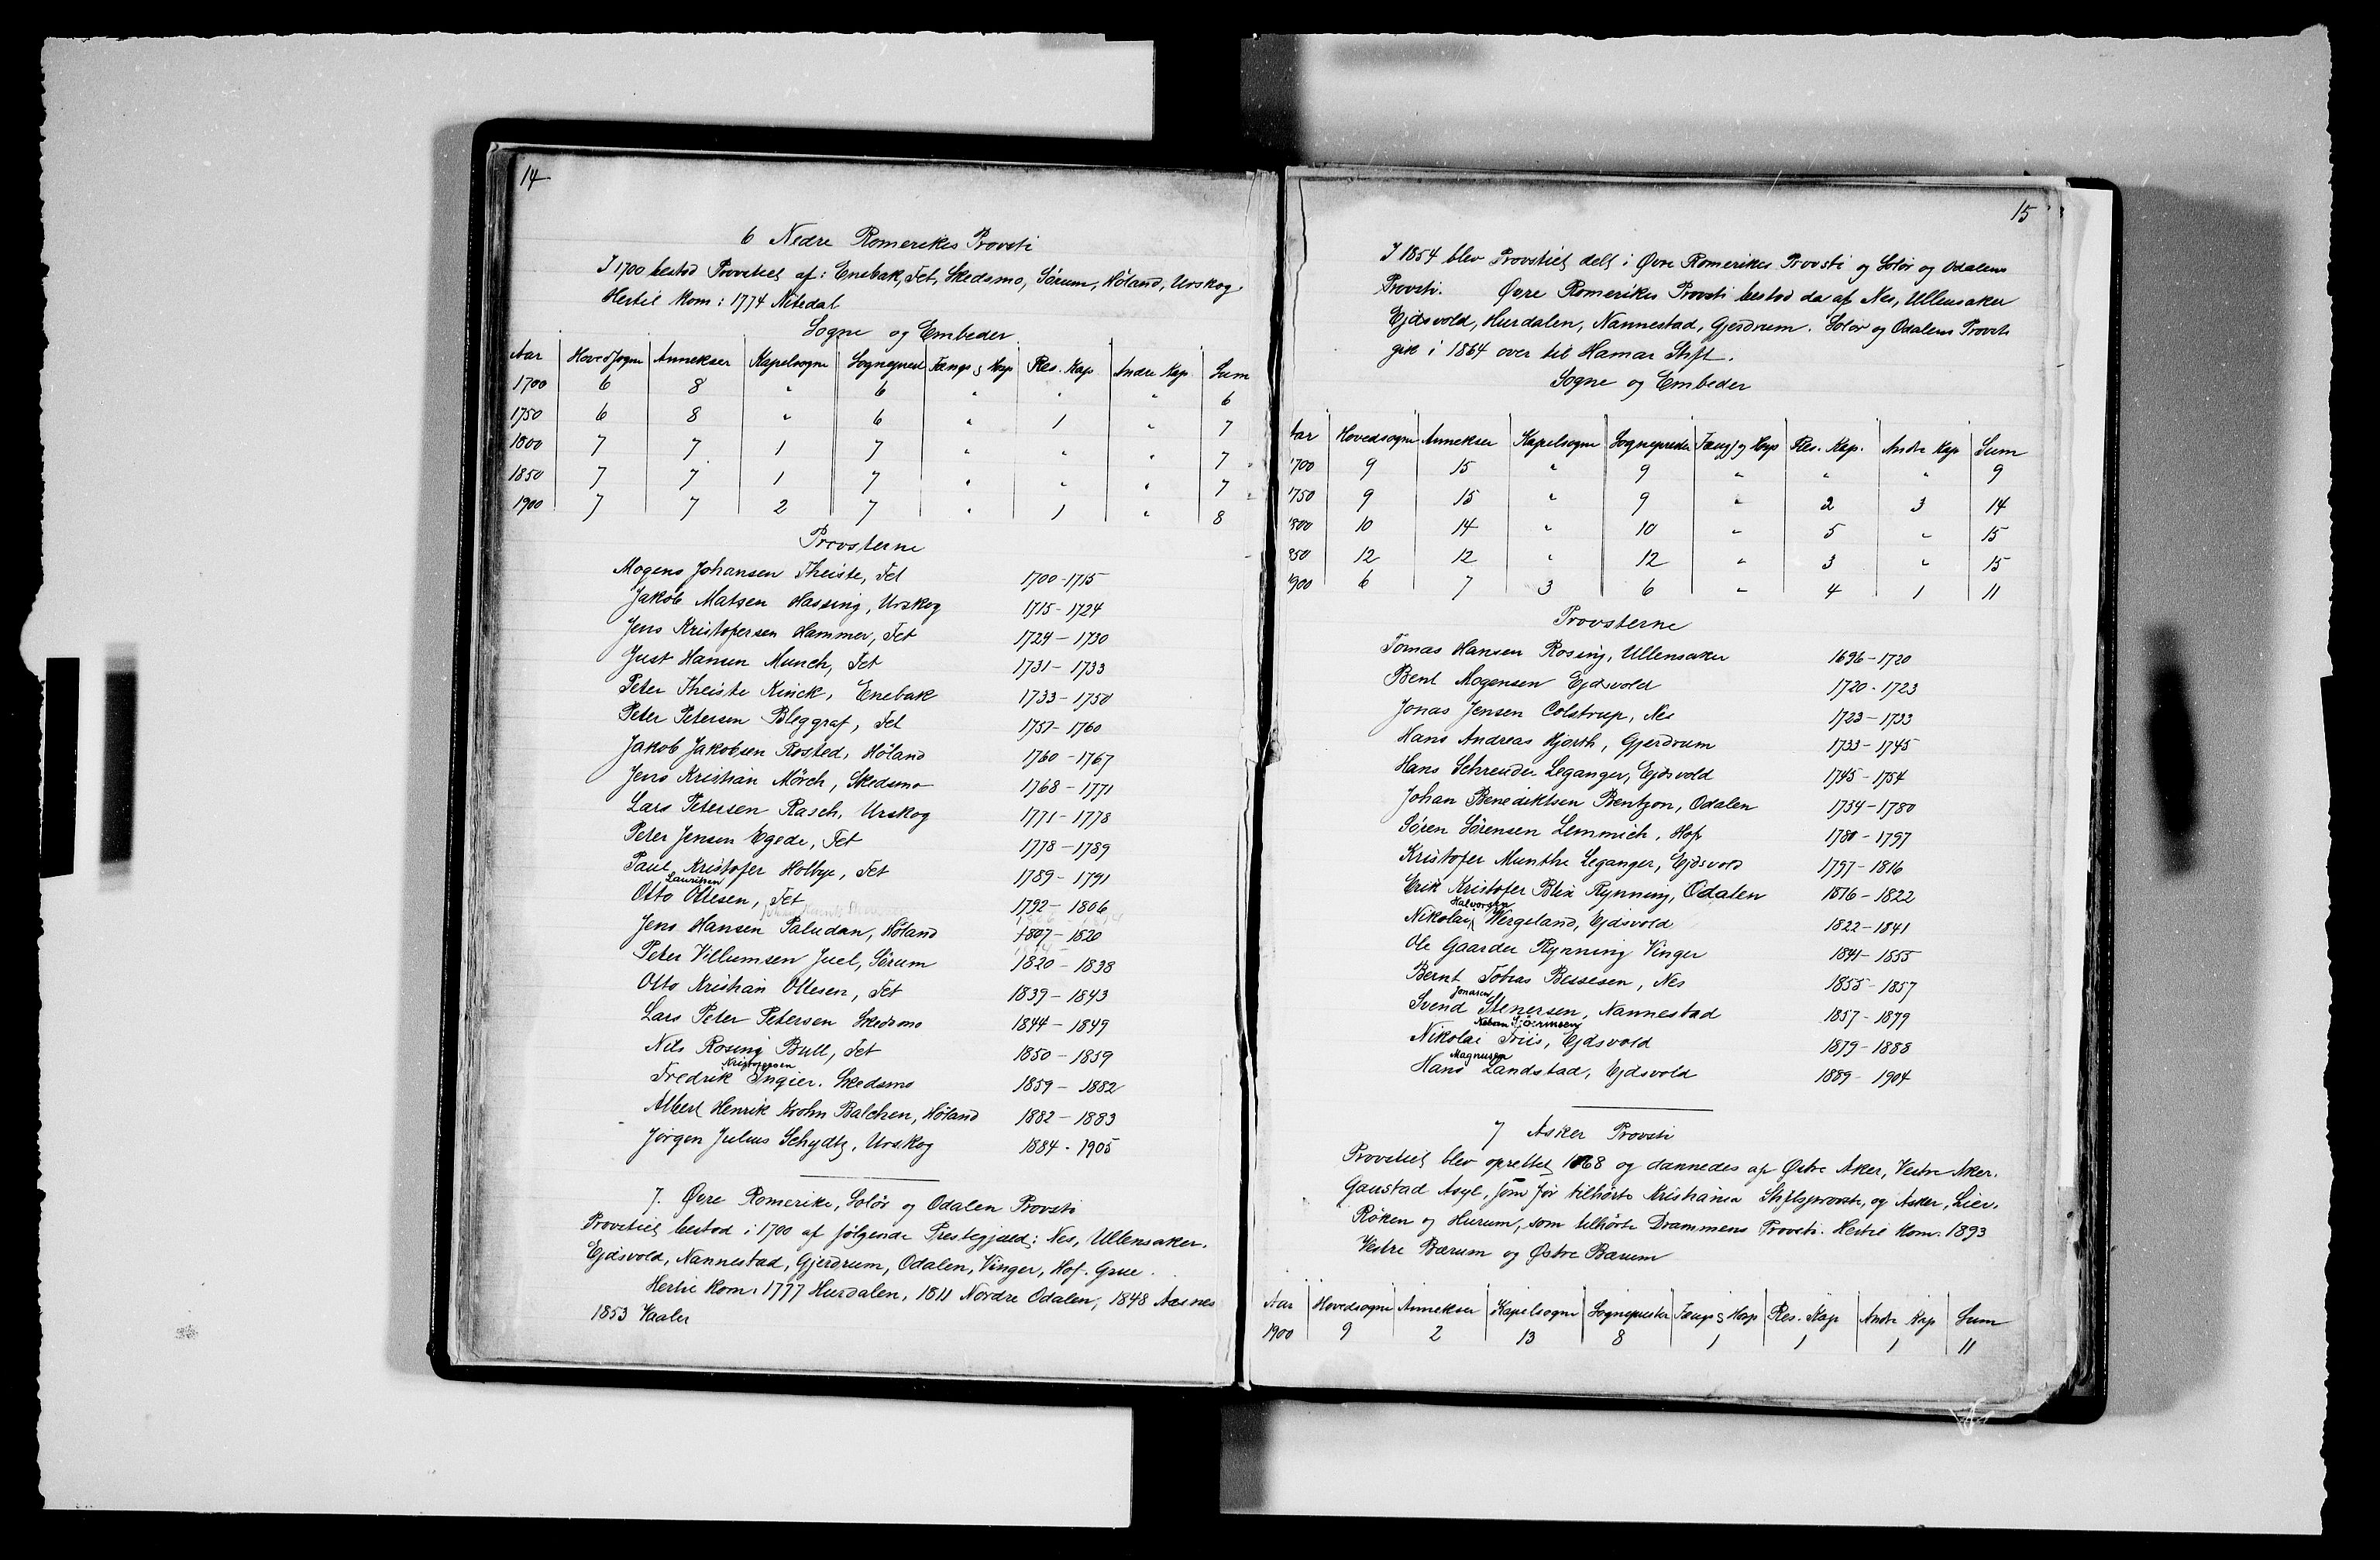 14
6 Nedre Romerikes Provsti
I 1700 bestod Provstiet af: Enebak, Fet, Skedsmo, Sørum, Høland, Urskog.
Hertil kom: 1774 Nitedal
Sogne og Embeder
Aar | Hovedsogne | Annekser | Kapelsogne | Sogneprest | Fængs. & Hosp | Res. Kap | Andre Kap. | Sum
1700 | 6 | 8 | " | 6 | " | " | " | 6
1750 | 6 | 8 | " | 6 | " | 1 | " | 7
1800 | 7 | 7 | 1 | 7 | " | " | " | 7
1850 | 7 | 7 | 1 | 7 | " | " | " | 7
1900 | 7 | 7 | 2 | 7 | " | 1 | " | 8
Provsterne
Mogens Johansen Theiste, Fet 1700-1715
Jakob Matsen Hassing, Urskog 1715-1724
Jens Kristofersen Hammer, Fet 1724-1730
Just Hansen Munch, Fet 1731-1733
Peter Theiste Kinck, Enebak 1733-1750
Peter Petersen Bleggraf, Fet 1751-1760
Jakob Jakobsen Rosted, Høland 1760-1767
Jens Kristian Mörch, Skedsmo 1768-1771
Lars Petersen Rasch, Urskog 1771-1778
Peter Jensen Egede, Fet 1778-1789
Paul Kristofer Holbye, Fet 1789-1791
Lauritsen
Otto Ottesen, Fet 1792-1806
Jens Hansen Paludan, Høland 1807-1820
Peter Villumsen Juel, Sørum 1820-1838
Otto Kristian Ottesen, Fet 1839-1843
Lars Peter Petersen Skedsmo 1844-1849
Nils Rosing Bull, Fet 1850-1859
Kristofersen
Fredrik Ingier. Skedsmo 1859-1882
Albert Henrik Krohn Balchen, Høland 1882-1883
Jørgen Julius Schydtz, Urskog 1884-1905
7. Øvre Romerike, Solør og Odalen Provsti
Provstiet bestod i 1700 af følgende Prestegjæld: Nes, Ullensaker.
Ejdsvold, Nannestad, Gjerdrum, Odalen, Vinger, Hof. Grue.
Hertil kom: 1777 Hurdalen, 1811 Nordre Odalen, 1848 Aasnes
1853 Vaaler
15
I 1854 blev Provstiet delt i Øvre Romerikes Provsti og Solør og Odalens
Provsti. Øvre Romerikes Provsti bestod da af Nes, Ullensaker
Ejdsvold, Hurdalen, Nannestad, Gjerdrum. Solør og Odalens Provsti
gik i 1864 over til Hamar Stift.
Sogne og Embeder
Aar | Hovedsogne | Annekser | Kapelsogne | Sogneprester | Fængs. og Hosp | Res. Kap. | Andre Kap | Sum
1700 | 9 | 15 | " | 9 | " | " | " | 9
1750 | 9 | 15 | " | 9 | " | 2 | 3 | 14
1800 | 10 | 14 | " | 10 | " | 5 | " | 15
1850 | 12 | 12 | " | 12 | " | 3 | " | 15
1900 | 6 | 7 | 3 | 6 | " | 4 | 1 | 11
Provsterne
Tomas Hansen Rosing, Ullensaker 1696-1720
Bent Mogensen Ejdsvold 1720-1723
Jonas Jensen Colstrup, Nes 1723-1733
Hans Andreas Hjorth, Gjerdrum 1733-1745
Hans Schreuder Leganger, Ejdsvold 1745-1754
Johan Benediktsen Bentzon, Odalen 1754-1780
Søren Sørensen Lemmich, Hof 1780-1797
Kristofer Munthe Leganger, Ejdsvold 1797-1816
Erik Kristofer Blix Rynning, Odalen 1816-1822
Halvorsen
Nikolai Wergeland, Ejdsvold 1822-1841
Ole Gaarder Rynning Vinger 1841-1855
Bernt Tobias Bessesen, Nes 1855-1857
Jonasen
Svend Stenersen, Nannestad 1857-1879
Sjørensen
Nikolai Friis, Ejdsvold 1879-1888
Magnusen
Hans Landstad, Ejdsvold 1889-1904
7 Asker Provsti
Provstiet blev oprettet 1868 og dannedes af Østre Aker, Vestre Aker.
Gaustad Asyl, som før tilhørte Kristiania Stiftsprovsti, og Asker, Lier,
Røken og Hurum, som tilhørte Drammens Provsti. Hertil kom. 1893
Vestre Bærum og Østre Bærum
Aar | Hovedsogne | Annekser | Kapelsogne | Sogneprester | Fængs. & Hosp | Res. Kap | Andre Kap | Sum
1900 | 9 | 2 | 13 | 8 | 1 | 1 | 1 | 11